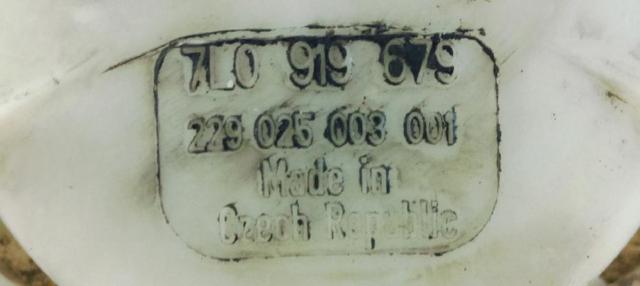 7L0 919 679
229 025 003 001
Made in
Czech Republic